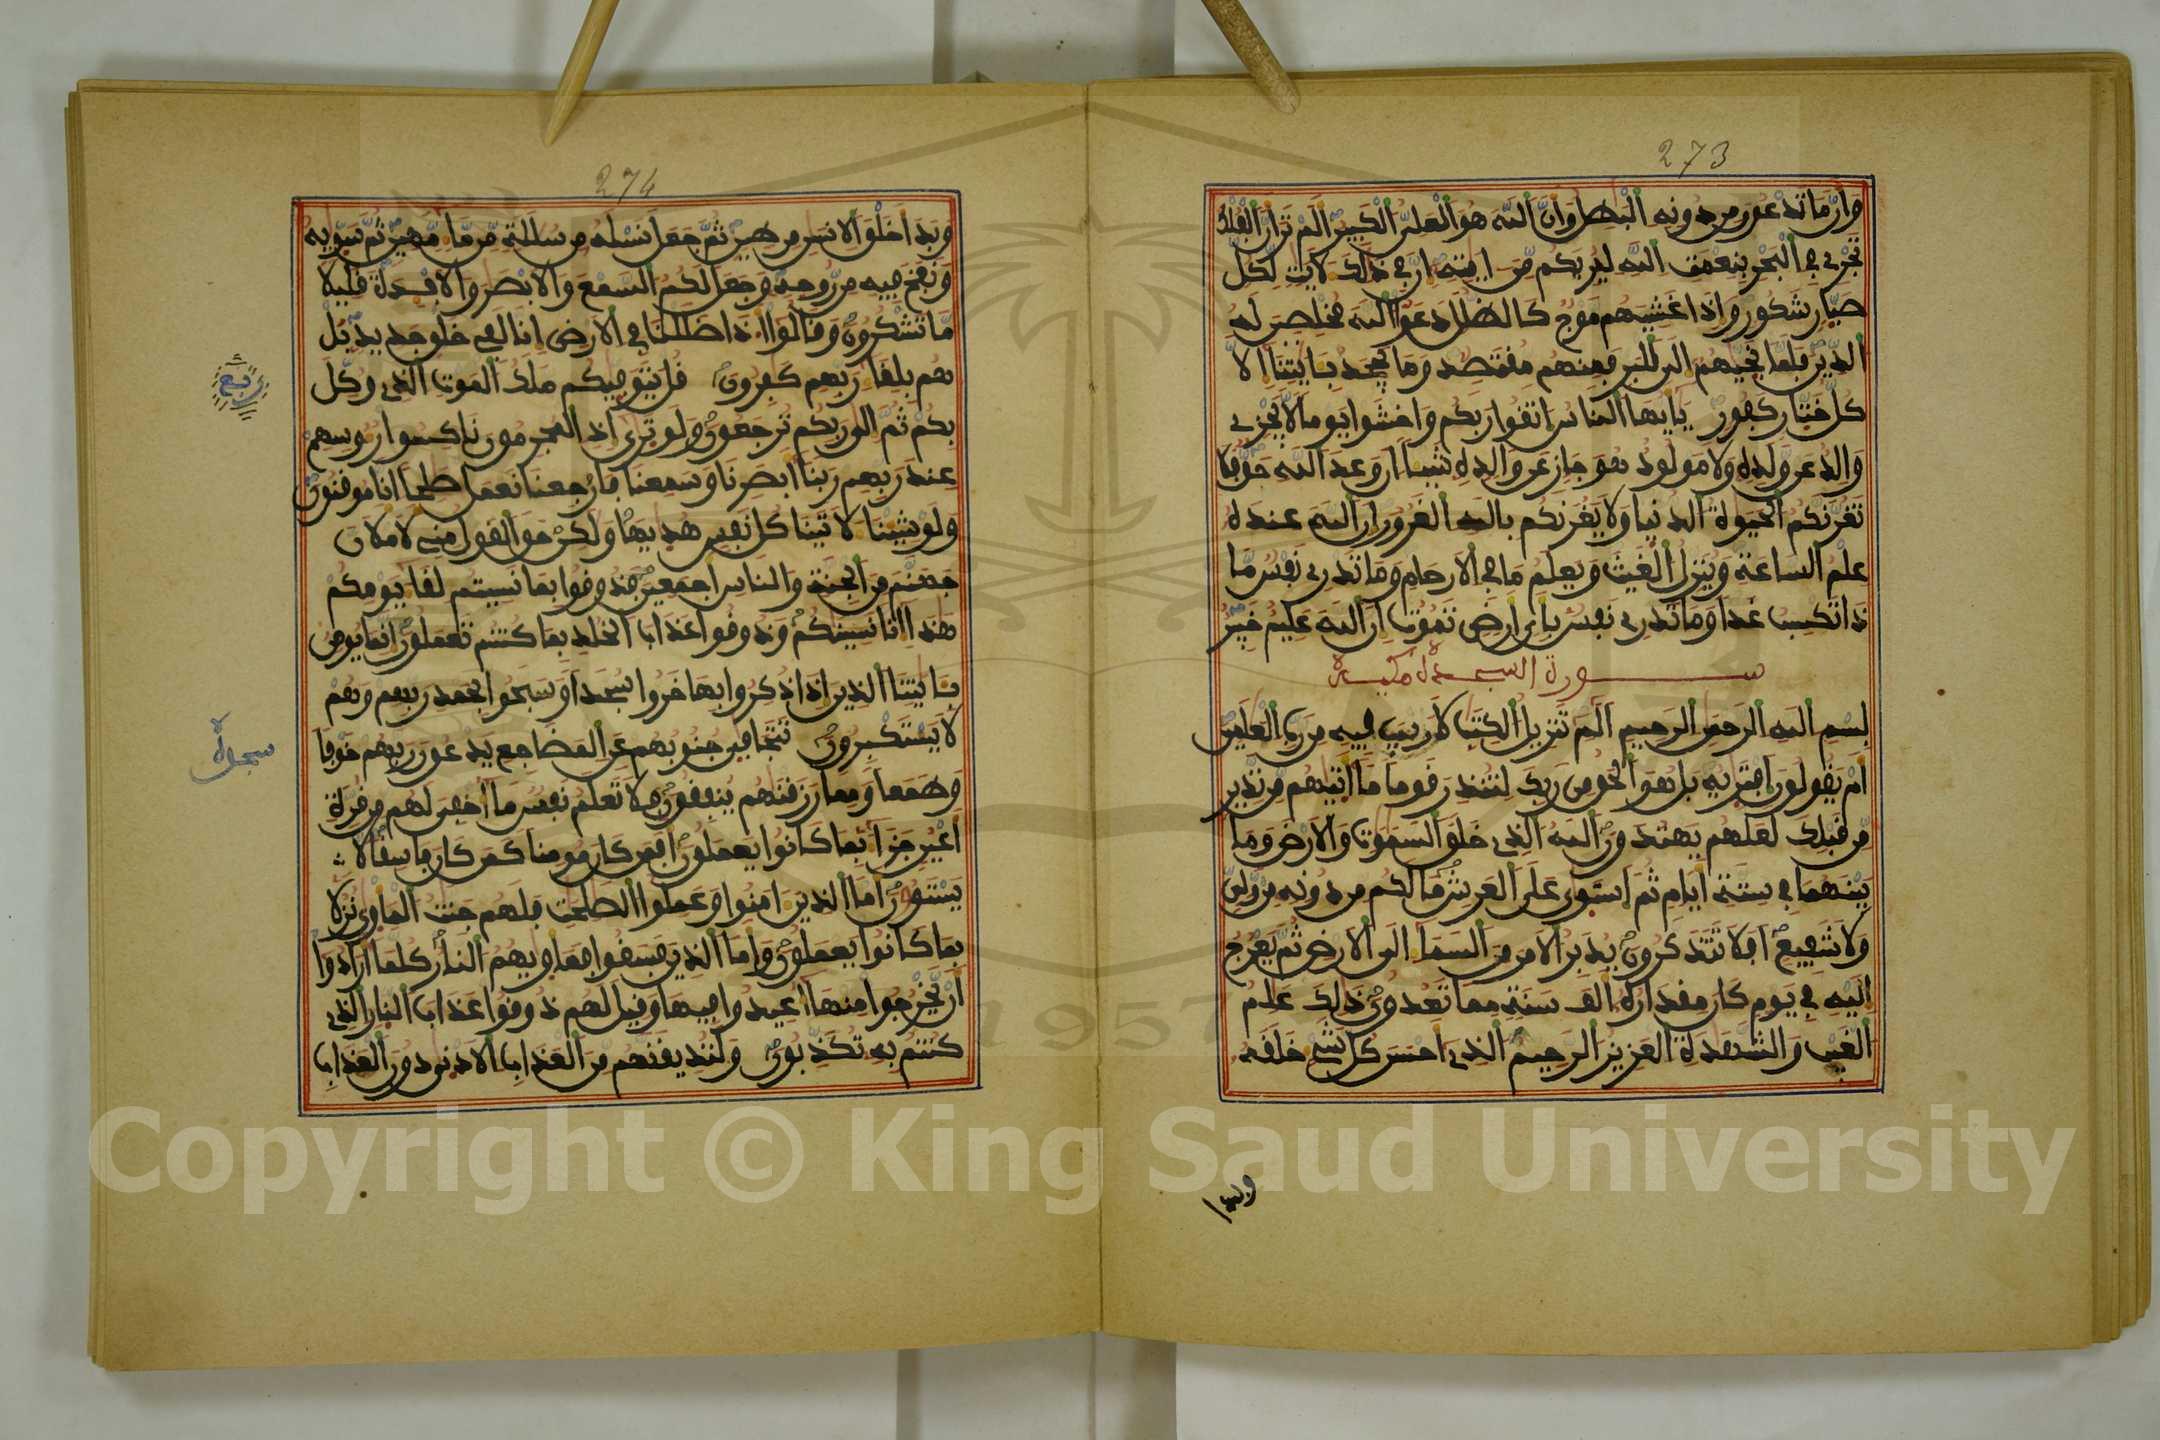 273
وأن ما تدعون من دونه البطل وأن الله هو العلي الكبير ألم تر أن الفلك
تجري في البحر بنعمت الله ليريكم من ءايته إن في ذلك لايت لكل
صبار شكور وإذا غشيهم موج كالظلل دعوا الله مخلصين له
الدين فلما نجيهم إلى البر فمنهم مقتصد وما يجحد بئايتنا إلا
كل ختار كفور يايها الناس اتقوا ربكم واخشوا يوما لا يجزي
والد عن ولده ولا مولود هو جاز عن والده شيئا إن وعد الله حق فلا
تغرنكم الحيوة الدنيا ولا يغرنكم بالله الغرور إن الله عنده
علم الساعة وينزل الغيث ويعلم ما في الارحام وما تدري نفس ما
ذا تكسب غدا وما تدري نفس بأي أرض تموت إن الله عليم خبير
سورة السجدة مكية
بسم الله الرحمن الرحيم ألم تنزيل الكتب لا ريب فيه من رب العلمين
أم يقولون افتريه بل هو الحق من ربك لتنذر قوما ما أتيهم من نذير
من قبلك لعلهم يهتدون الله الذي خلق السموت والارض وما
بينهما في ستة أيام ثم استوى على العرش ما لكم من دونه من ولي
ولا شفيع أفلا تتذكرون يدبر الامر من السماء إلى الارض ثم يعرج
إليه في يوم كان مقداره ألف سنة مما تعدون ذلك علم
الغيب والشهدة العزيز الرحيم الذي أحسن كل شيء خلقه
وبدا
274
وبدأ خلق الانسن من طين ثم جعل نسله من سللة من ماء مهين ثم سويه
ونفخ فيه من روحه وجعل لكم السمع والابصر والافدة قليلا
ما تشكرون وقالوا أءذا ضللنا في الارض إنا لفي خلق جديد بل
هم بلقاء ربهم كفرون قل يتوفيكم ملك الموت الذي وكل
بكم ثم إلى ربكم ترجعون ولو ترى إذ المجرمون ناكسوا رءوسهم
عند ربهم ربنا أبصرنا وسمعنا فارجعنا نعمل صلحا إنا موقنون
ولو شئنا لاتينا كل نفس هديها ولكن حق القول مني لاملأن
جهنم من الجنة والناس أجمعين فذوقوا بما نسيتم لقاء يومكم
هذا إنا نسينكم وذوقوا عذاب الخلد بما كنتم تعملون إنما يومن
بئايتنا الذين إذا ذكروا بها خروا سجدا وسبحوا بحمد ربهم وهم
لا يستكبرون تتجافى جنوبهم عن المضاجع يدعون ربهم خوفا
وطمعا ومما رزقنهم ينفقون فلا تعلم نفس ما أخفي لهم من قرة
أعين جزاء بما كانوا يعملون أفمن كان مومنا كمن كان فاسقا لا
يستوون أما الذين ءامنوا وعملوا الصلحت فلهم جنت الماوى نزلا
بما كانوا يعملون وأما الذين فسقوا فماويهم النار كلما أرادوا
أن يخرجوا منها أعيدوا فيها وقيل لهم ذوقوا عذاب النار الذي
كنتم به تكذبون ولنذيقنهم من العذاب الادنى دون العذاب
ربع
سجدة
1957
Copyright © King Saud University